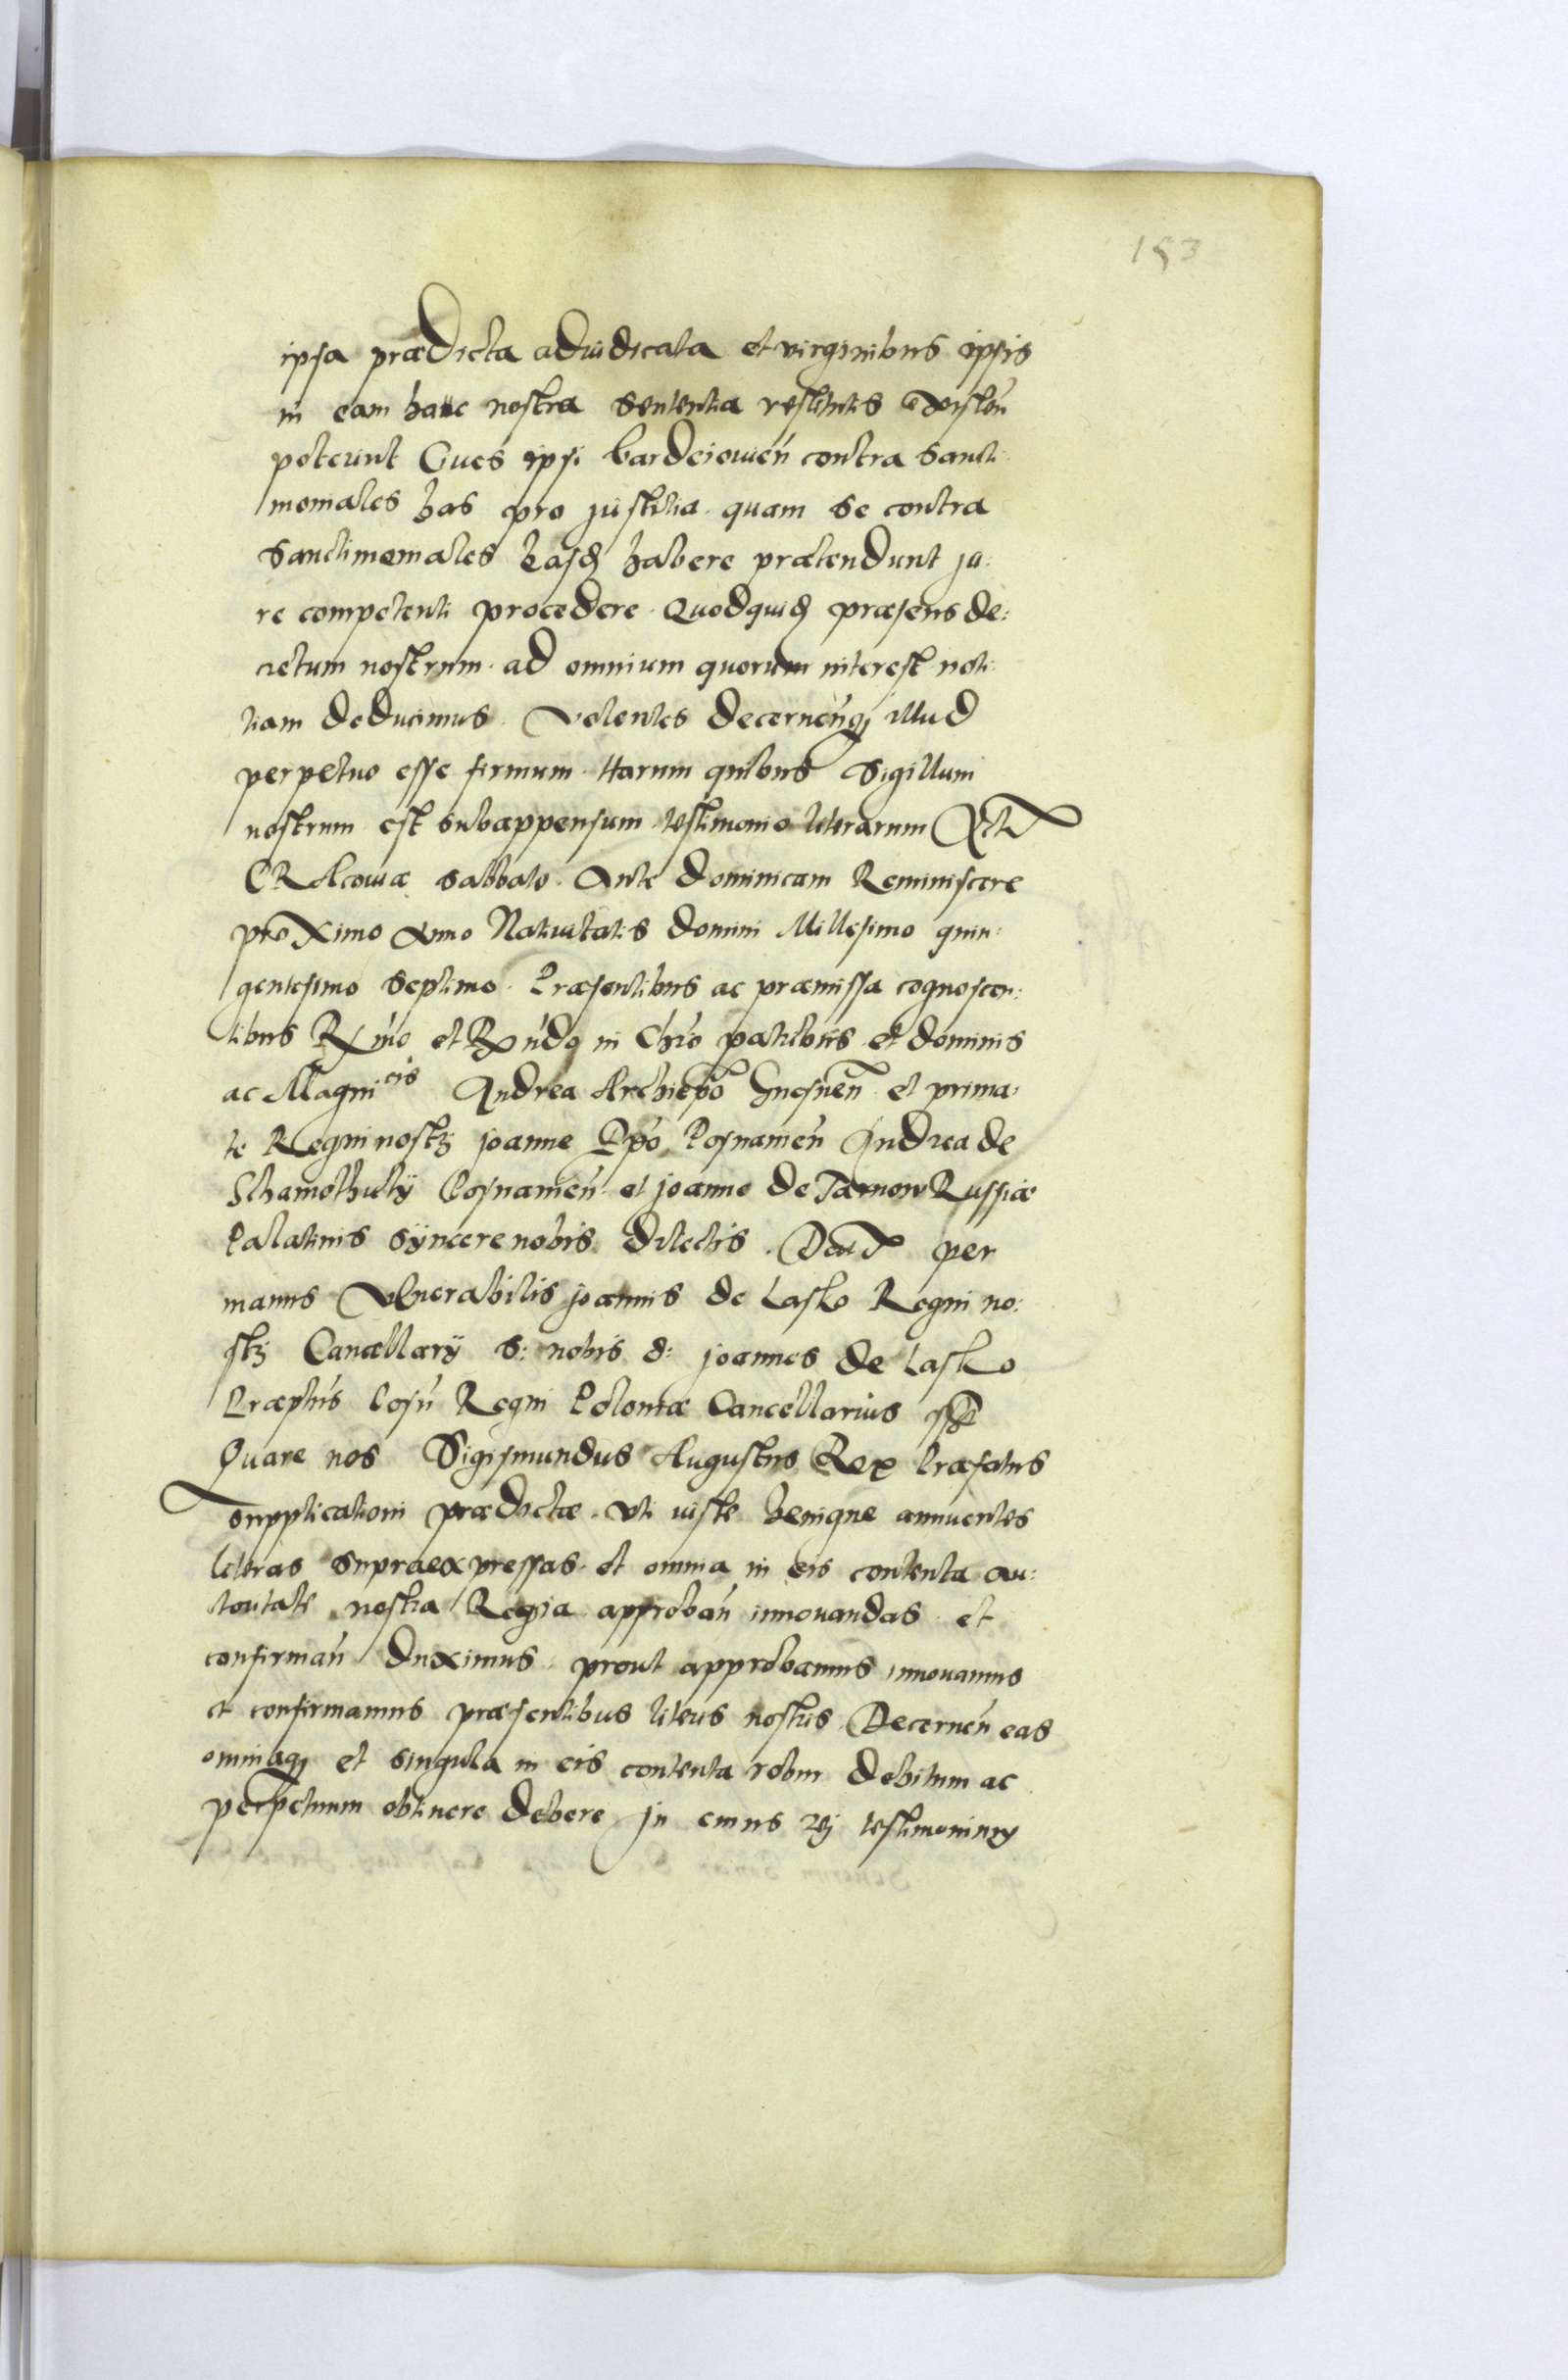 153
ipsa prædicta adiudicata et virginibus ipsis
in eam hanc nostra sententia restitutis existen̄
poterunt Ciues ipsi bardeiouien̄ contra sancti
moniales has pro justitia quam se contra
Sanctimoniales easdȝ habere prætendunt ju:
re competenti procedere. Quodquidȝ præsens de:
cretum nostrum ad omnium quorum interest noti
tiam deducimus. Volentes decernen̄qȝ illud
perpetuo esse firmum. Harum quibus Sigillum
nostrum est subappensum testimonio literarum Act
CRAcouiæ sabbato Ante dominicam Reminiscere
proximo Anno Natiuitatis domini Millesimo quin:
gentesimo septimo. Præsentibus ac præmissa cognoscen:
tibus Rx̄mo et Rx̄ndo in Chr̄o patribus et dominis
ac Magnicis Andrea Archiep̄o Gnesnen̄ et prima:
te Regni nostȝ joanne Ep̄o Posnanien̄ Andrea de
Schamothuly Posnanien̄ et joanne de Tarnow Russiæ
Palatinis syncere nobis dilectis. Dat per
manus Venerabilis joannis de Lasko Regni no:
stȝ Cancellary s: nobis d: joannes de Lasko
Præptūs Posn̄ Regni Poloniæ Cancellarius sst
Quare nos Sigismundus Augustus Rex Præfatus
supplicationi prædictæ. vti iustæ benigne annuentes
literas supraexpressas et omnia in eis contenta au:
toritate nostra Regia approban̄ innouandas et
confirman̄ duximus prout approbamus innouamus
et confirmamus præsentibus literis nostris. Decernen̄ eas
omniaqȝ et singula in eis contenta robur debitum ac
perpetuum obtinere debere In cuius rej testimonium